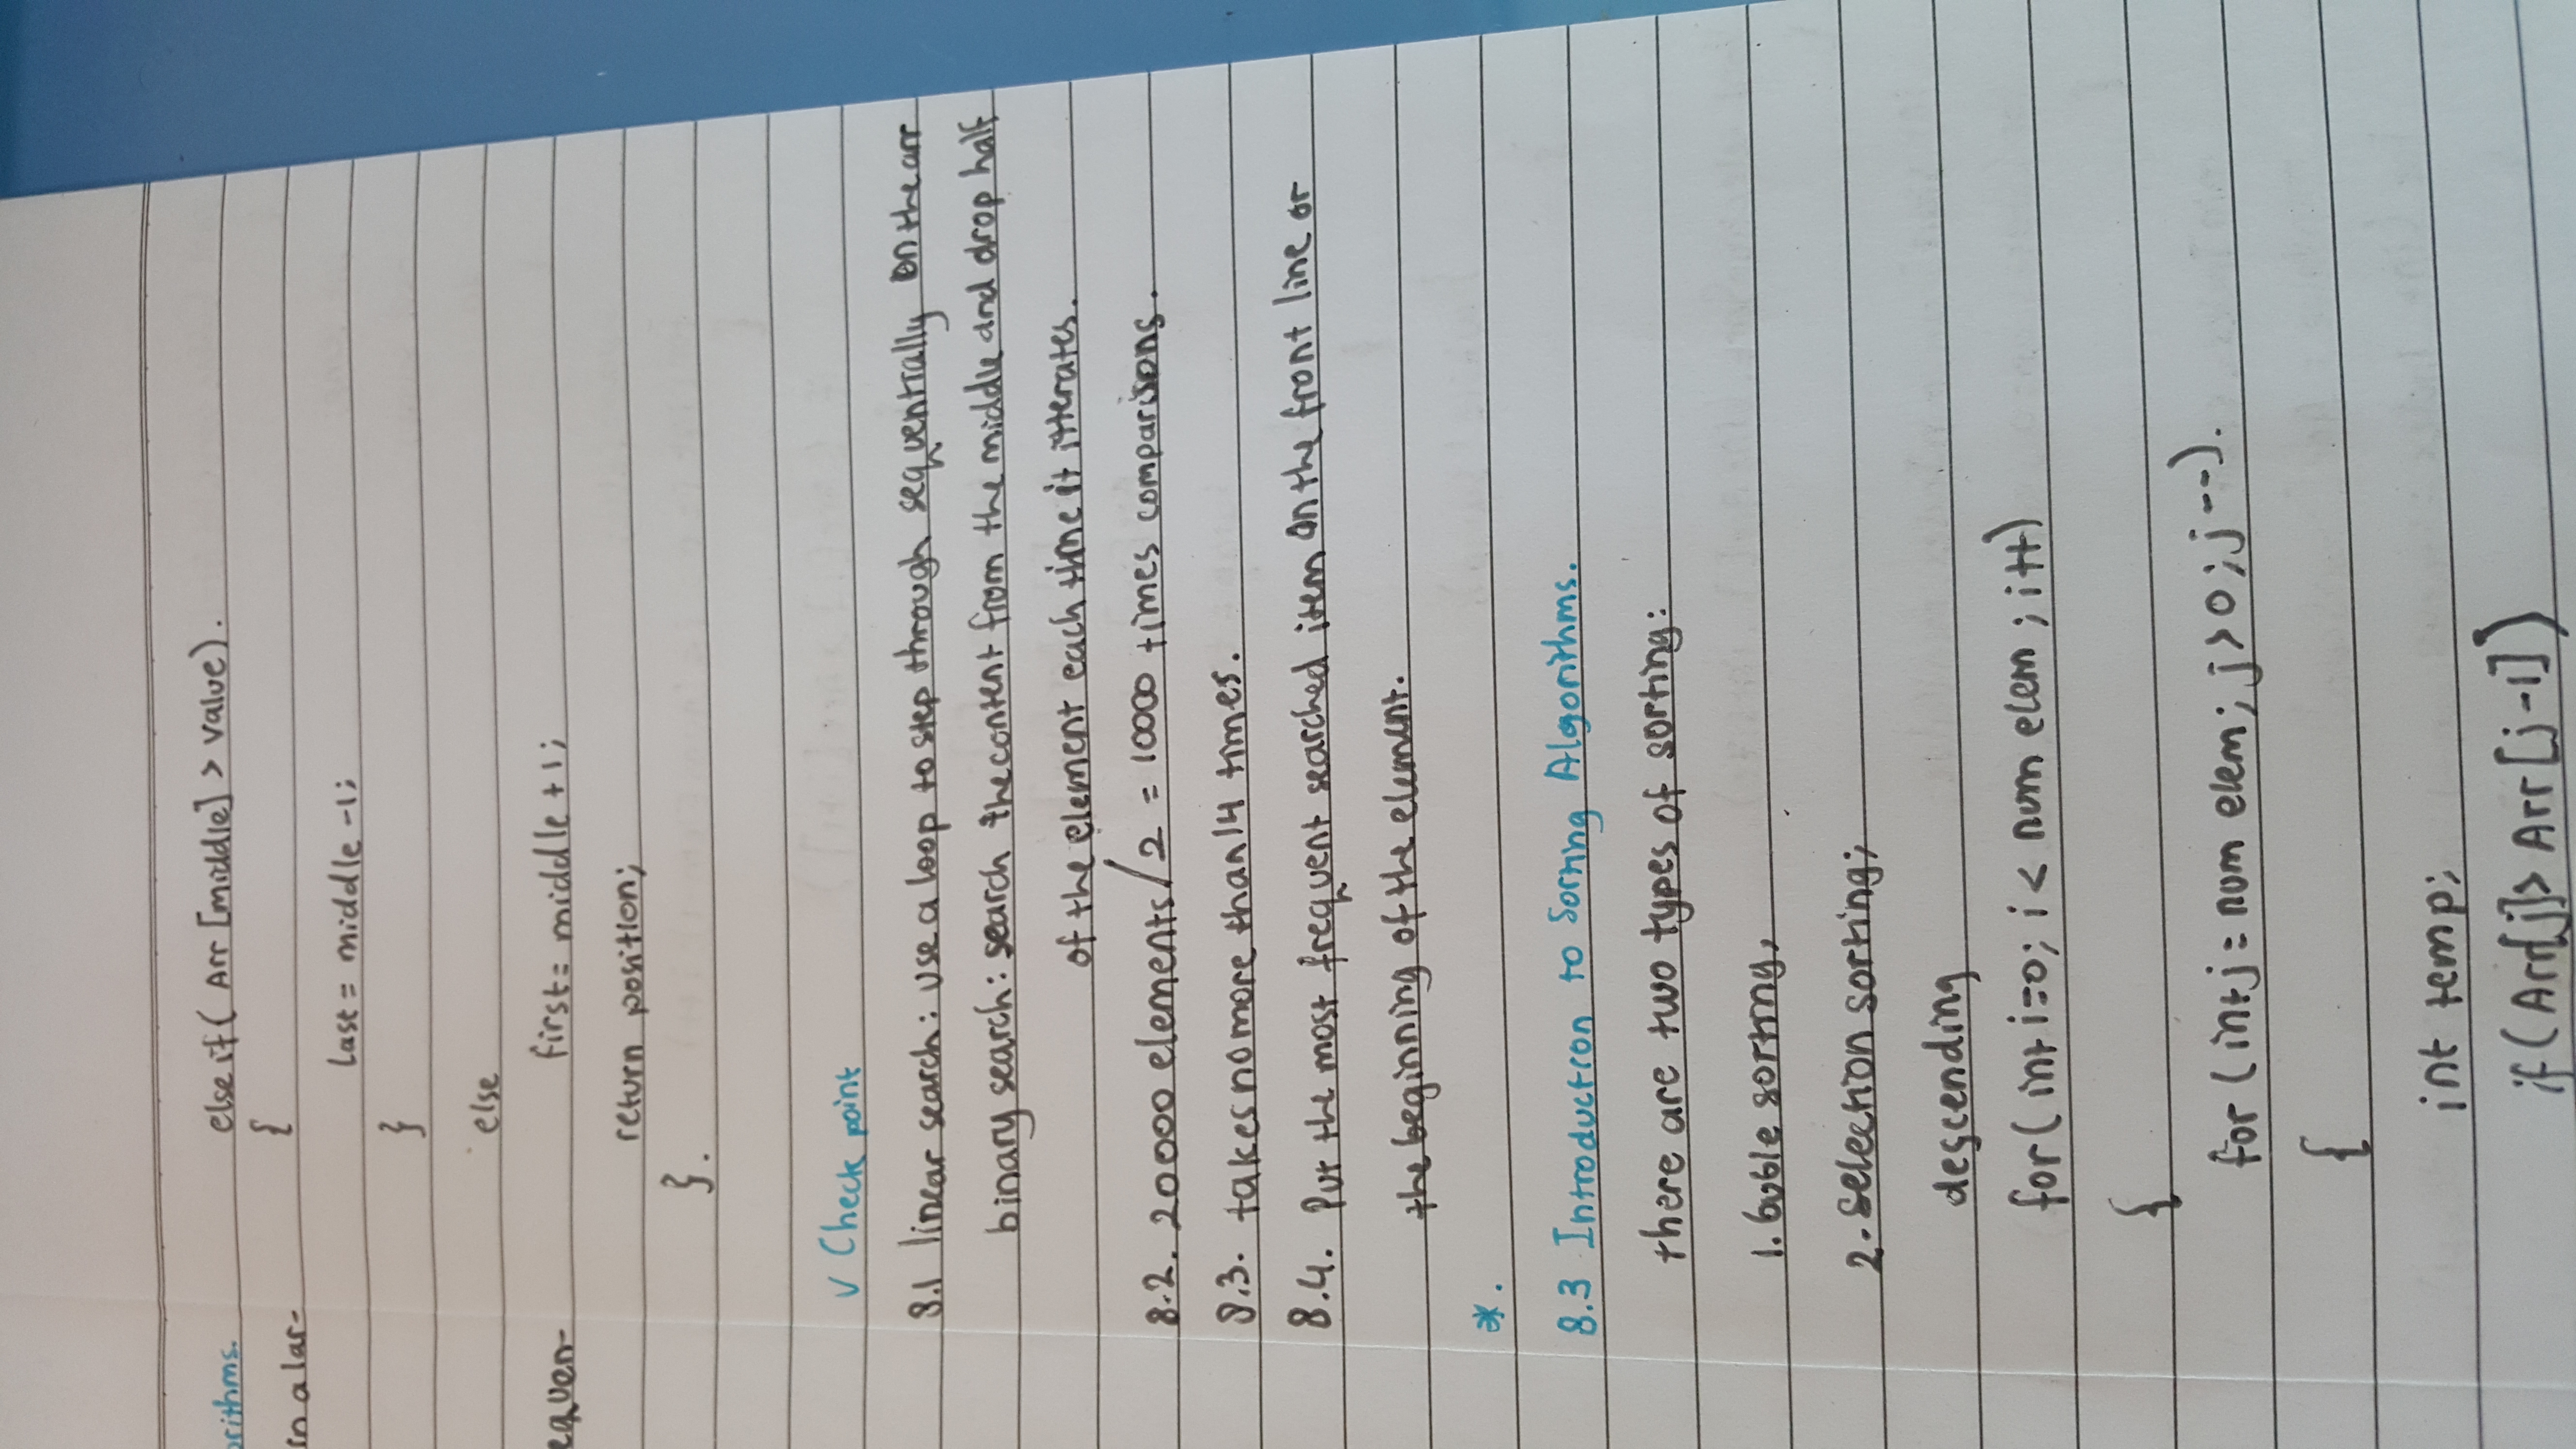 orithms.
in a lar-
equen-
else if ( Arr [middle] > value).
{
last = middle -1;
}
else
first = middle + 1;
return position;
}.
√ Check point
8.1 linear search: use a loop to step through sequentially on the arr
binary search: search the content from the middle and drop half
of the element each time it itterates.
8.2. 20000 elements/2 = 10000 times comparisons.
8.3. takes no more than 14 times.
8.4. Put the most frequent searched item on the front line or
the beginning of the element.
*.
8.3 Introduction to Sorting Algorithms.
there are two types of sorting:
1. buble sorting,
2. Selection sorting;
descending
for ( int i=0; i < num elem ; i++)
{
for ( int j = num elem; j > 0 ; j --).
{
int temp;
if ( Arr[j] > Arr [j-1])